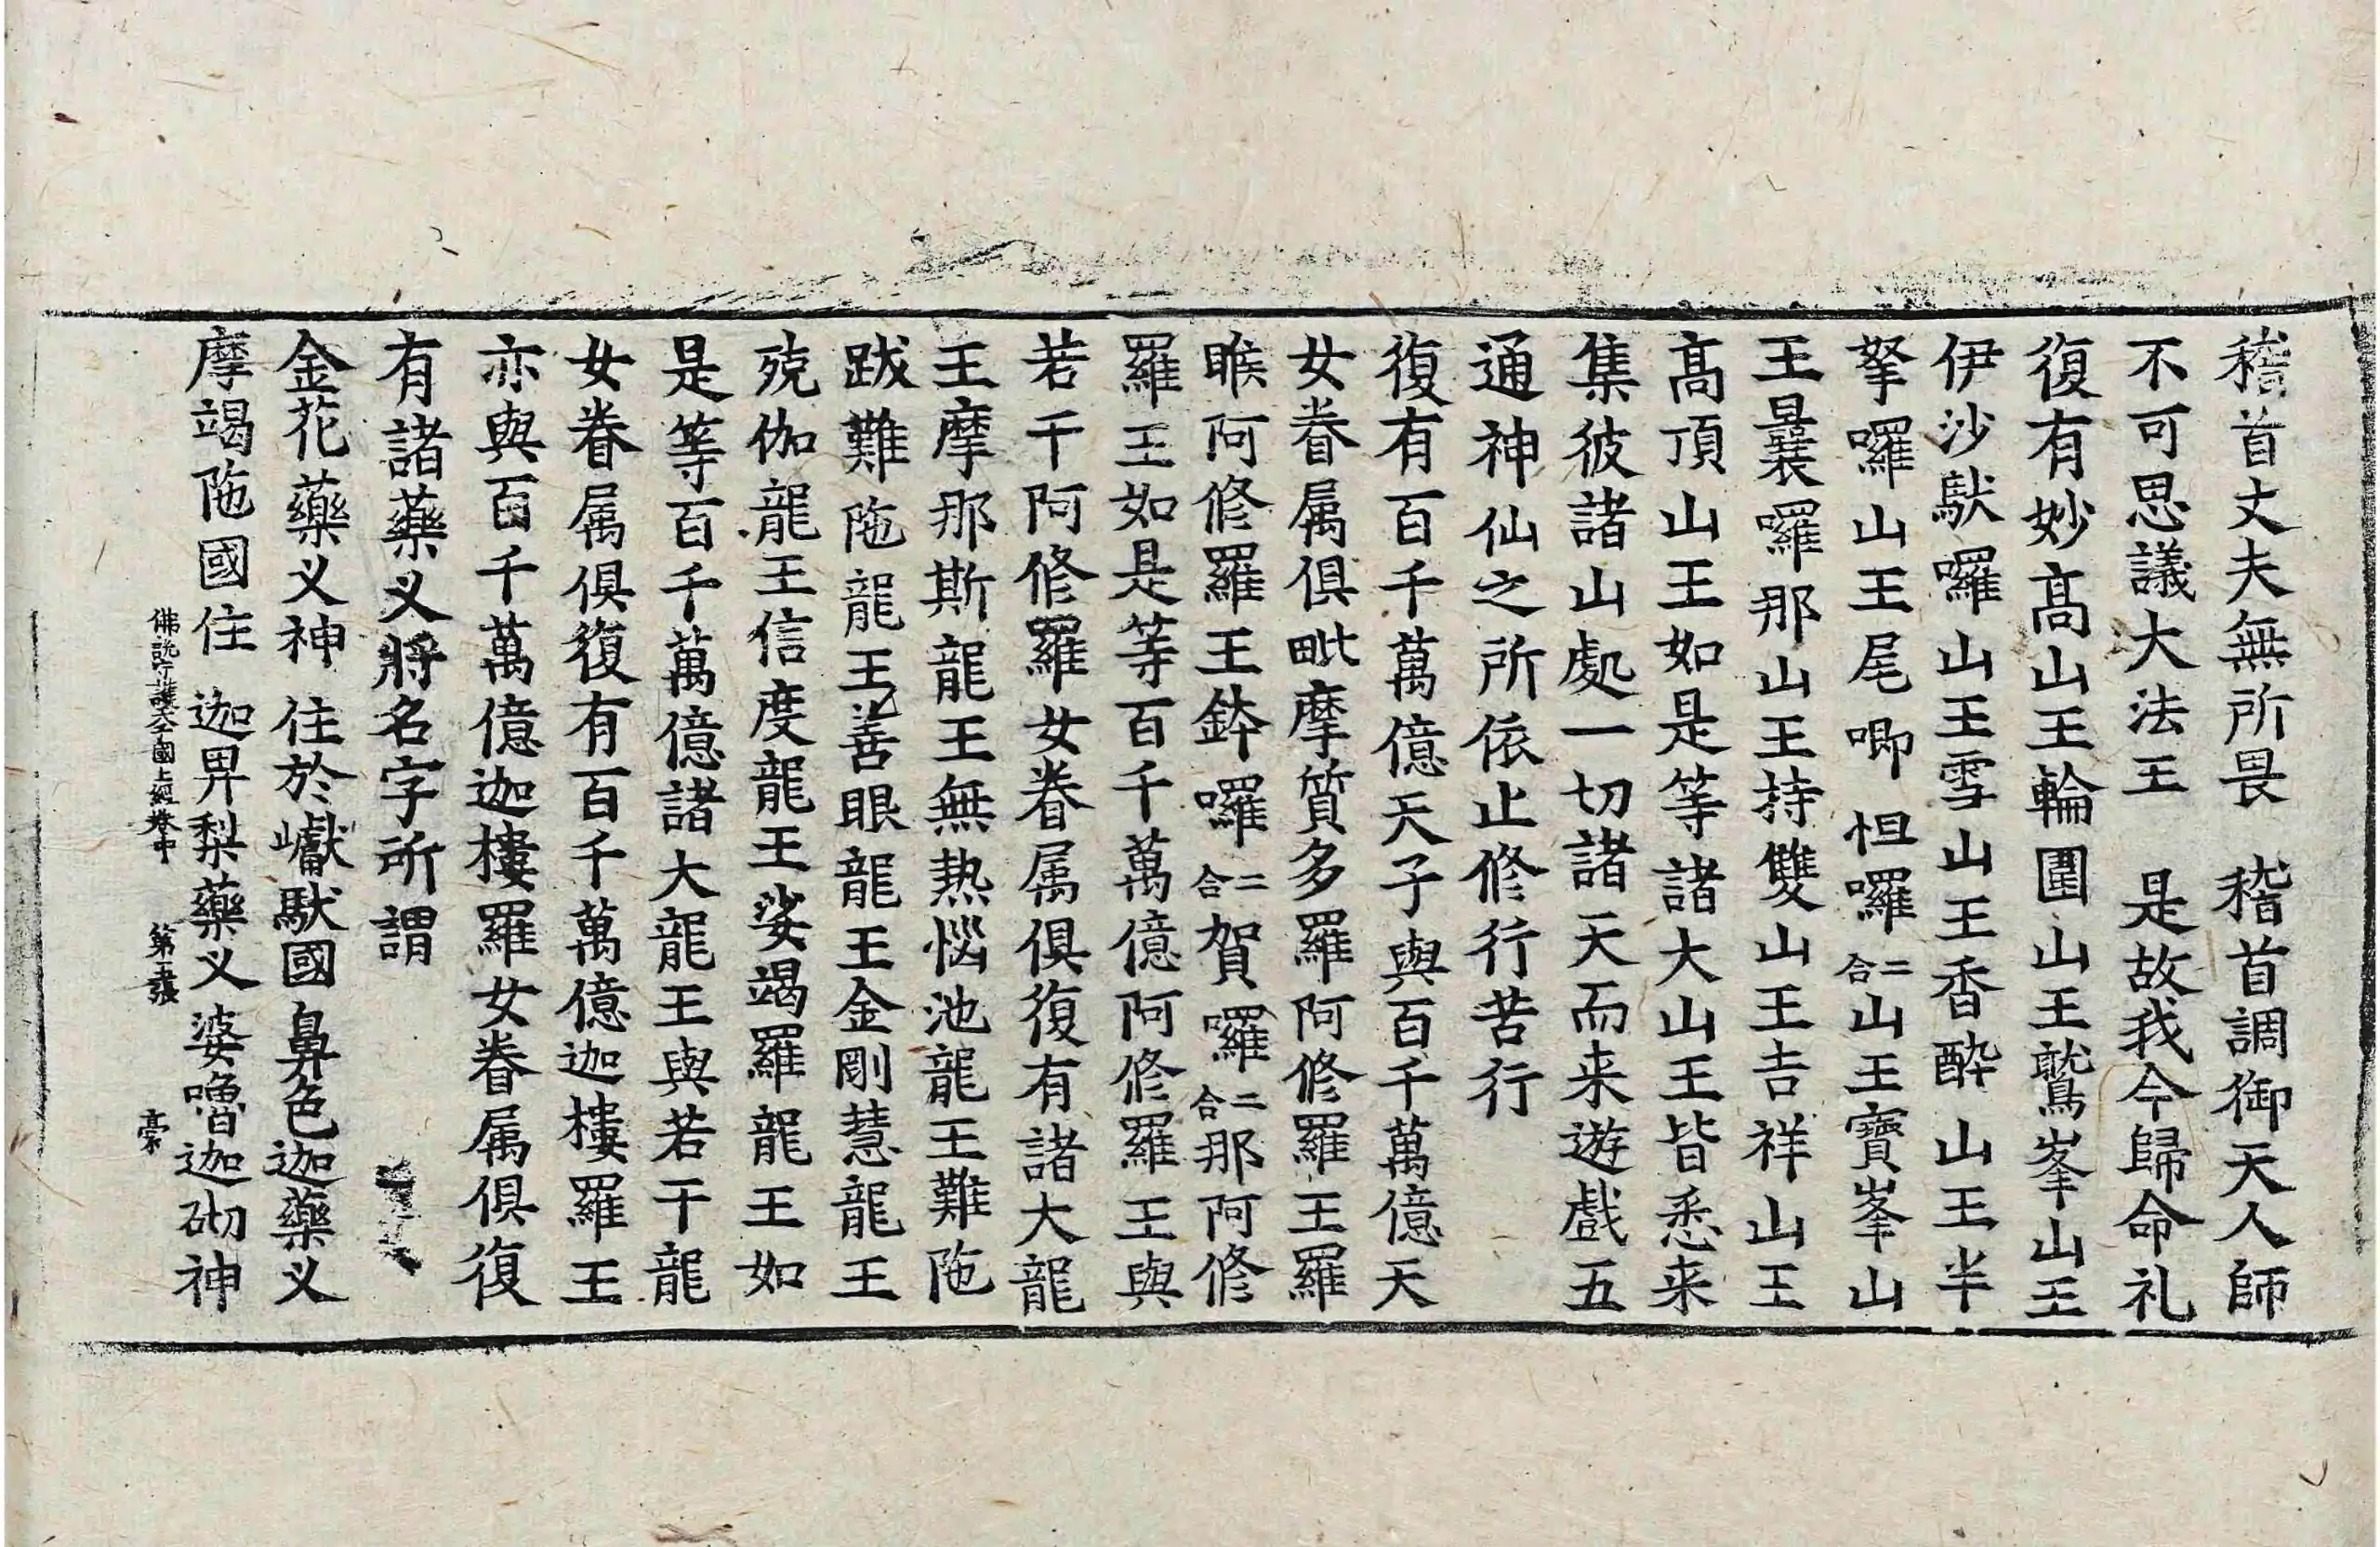 稽首丈夫無所畏　稽首調御天人師
不可思議大法王　是故我今歸命礼
復有妙高山王輪圍山王鷲峯山王
伊沙䭾囉山王雪山王香酔山王半
拏囉山王尾唧怛囉二合山王寶峯山
王曩囉那山王持雙山王吉祥山王
髙頂山王如是等諸大山王皆悉来
集彼諸山處一切諸天而来遊戲五
通神仙之所依止修行苦行
復有百千萬億天子與百千萬億天
女眷属俱毗摩質多羅阿修羅王羅
睺阿修羅王鉢囉二合賀囉二合那阿修
羅王如是等百千萬億阿修羅王與
若千阿修羅女眷属俱復有諸大龍
王摩那斯龍王無热惱池龍王難陁
跋難陁龍王善眼龍王金剛慧龍王
殑伽龍王信度龍王娑竭羅龍王如
是等百千萬億諸大龍王與若干龍
女眷属俱復有百千萬億迦樓羅王
亦與百千萬億迦樓羅女眷属俱復
有諸藥义將名字所謂
金花藥义神　住於巘䭾國鼻色迦藥义
摩竭陁國住　迦畀梨藥义婆嚕迦砌神
佛説守護大千國土經卷中　第五張　豪